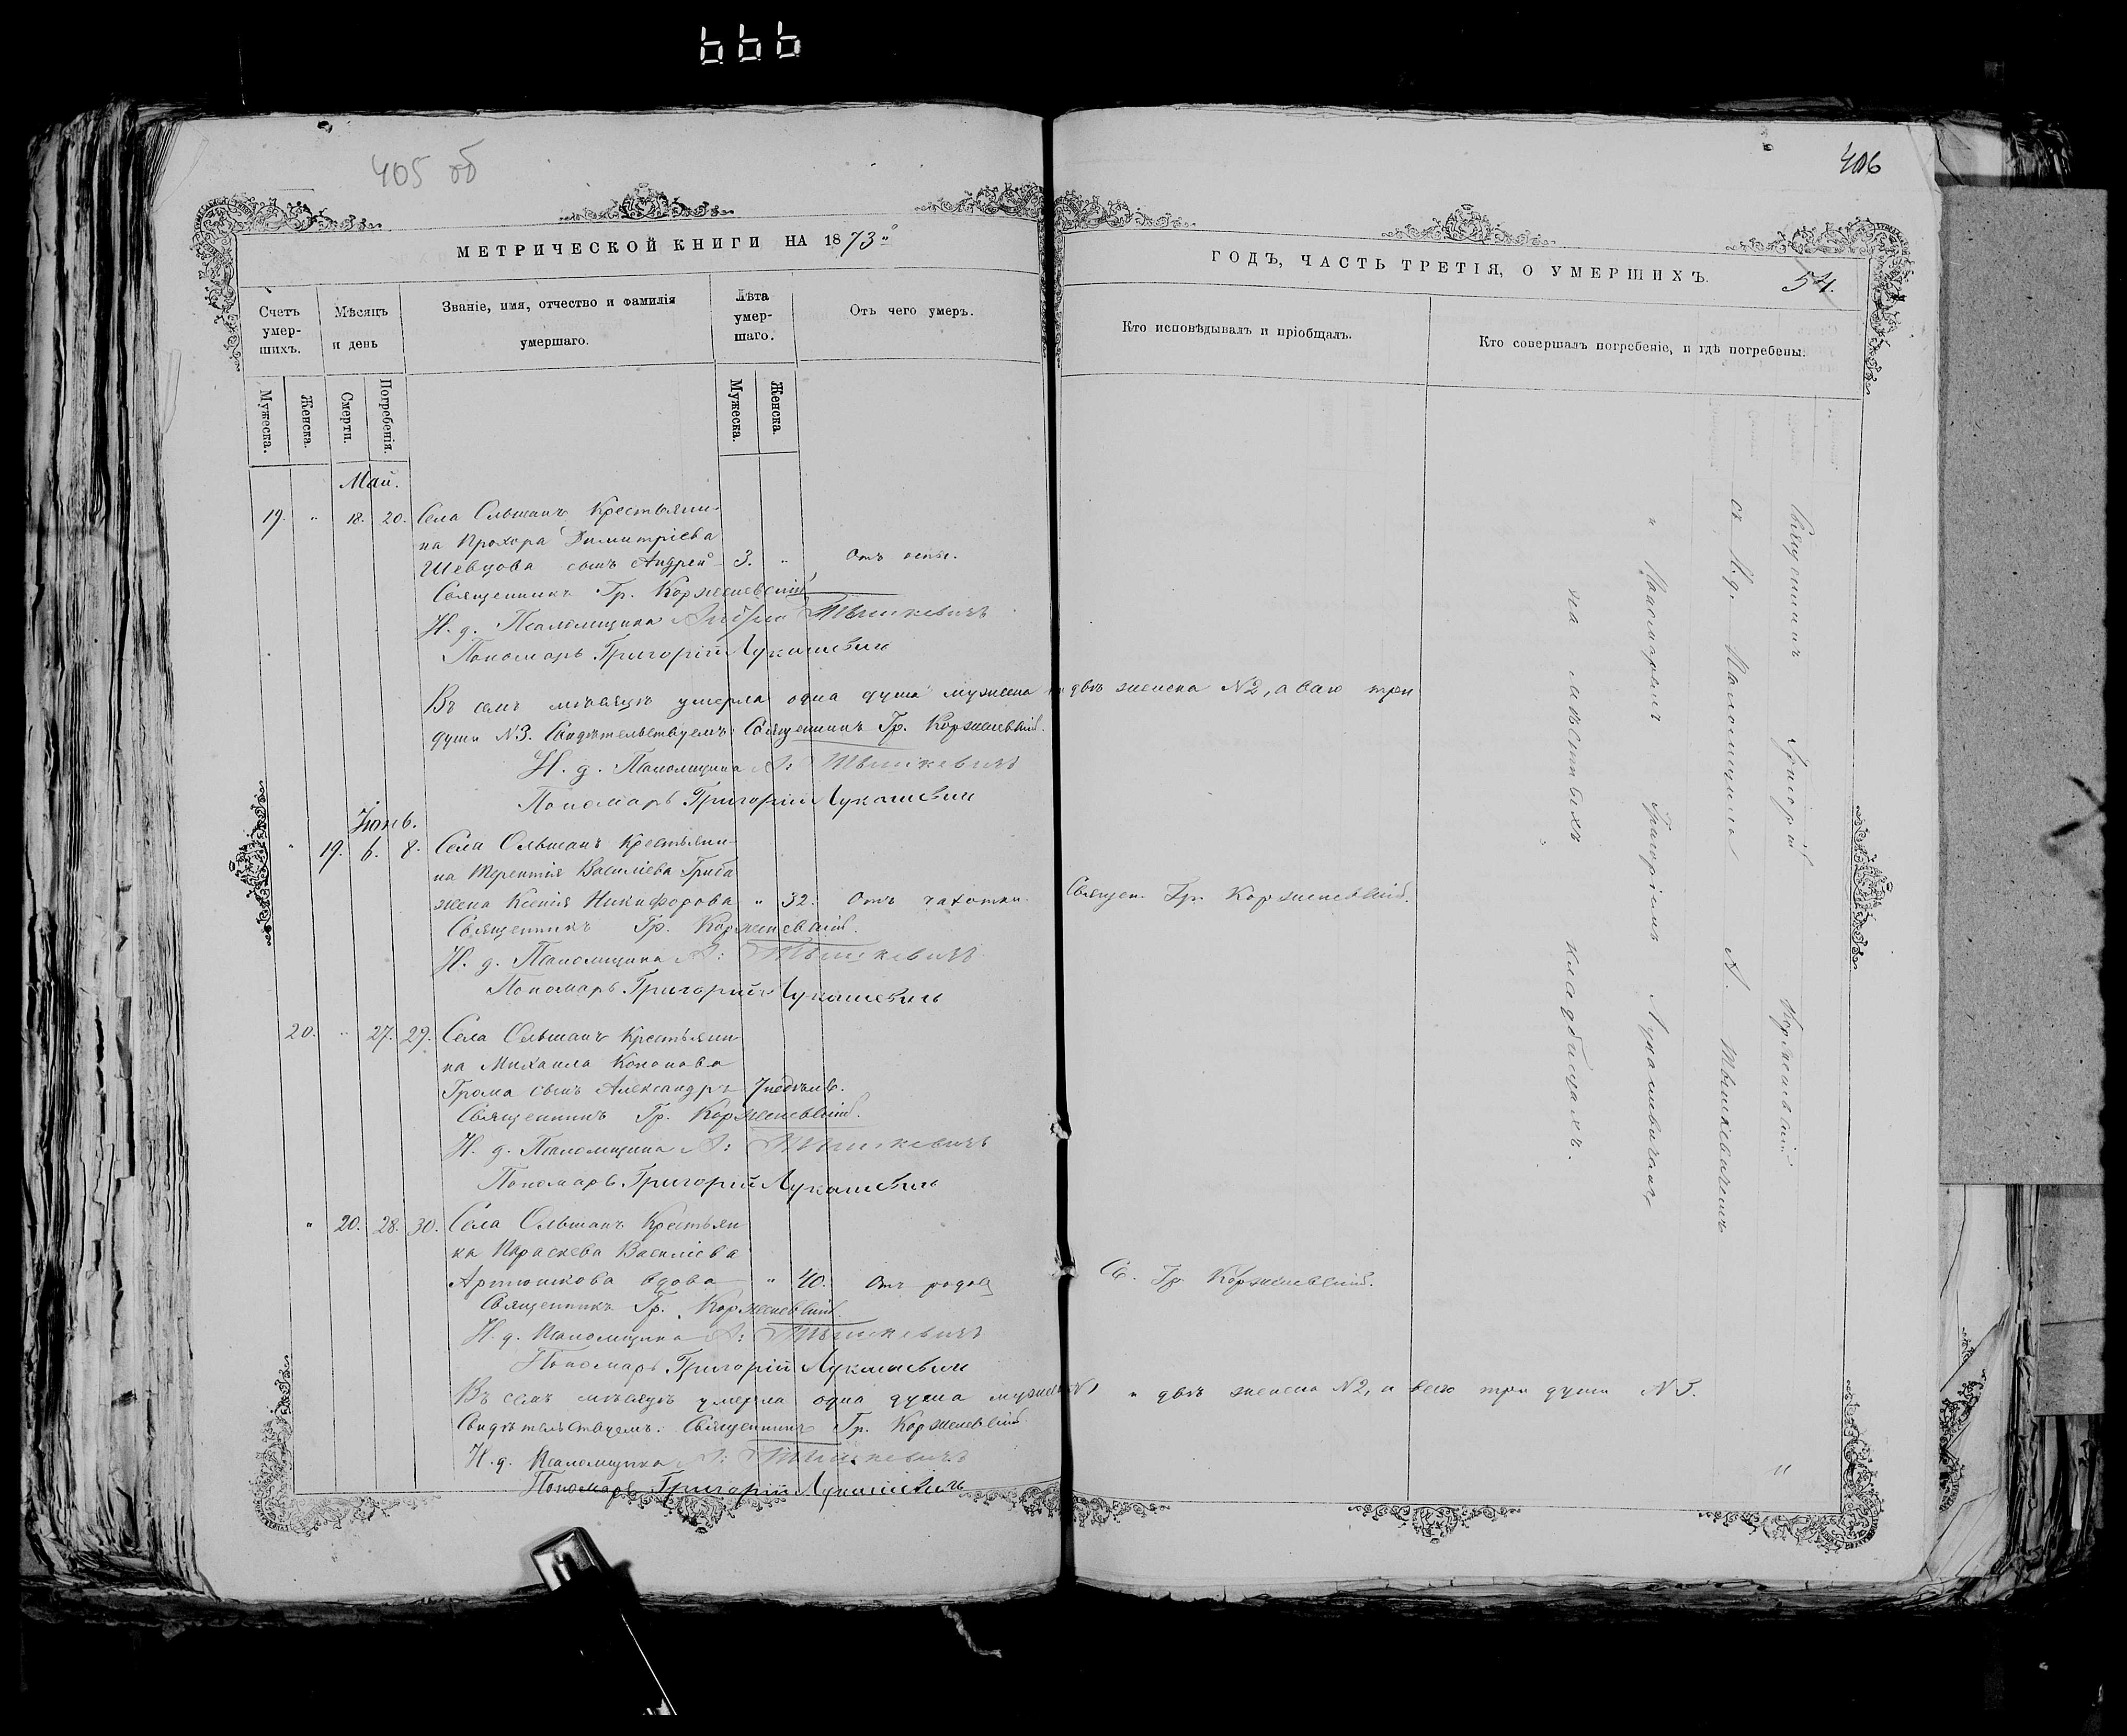 666
405 об
406
МЕТРИЧЕСКОЙ КНИГИ НА 1873й
ГОДЪ, ЧАСТЬ ТРЕТІЯ, О УМЕРШИХЪ.
54.
Счетъ умер-шихъ.
Мѣсяцъ и день
Званіе, имя, отчество и фамилія умершаго.
Лѣта умер-шаго.
Отъ чего умеръ.
Кто исповѣдывалъ и пріобщалъ.
Кто совершалъ погребеніе, и гдѣ погребены.
Мужеска.
Женска.
Смерти.
Погребенія.
Мужеска.
Женска.
Май.
19. " 18. 20. Села Ольшанъ Крестьяни-
на Прохора Димитріева
Шевцова сынъ Андрей 3. " Отъ оспы.
Священникъ Гр. Корженевскій
И. д. Псаломщика Тышкевичъ
Пономарь Григорій Лукашевичъ
Въ семъ мѣсяцѣ умерла одна душа мужеска и двѣ женска №2, а всего три
души №3. Свидѣтельствуемъ: Священникъ Гр. Корженевскій.
И. д. Псаломщика А: Тышкевичъ
Пономарь Григорій Лукашевичъ
Іюнь.
" 19. 6. 8. Села Ольшанъ Крестьяни-
на Терентія Василіева Гриба
жена Ксенія Никифорова " 32. Отъ чахотки. Священ. Гр. Корженевскій.
Священникъ Гр. Корженевскій.
И. д. Псаломщика А: Тышкевичъ
Пономарь Григорій Лукашевичъ
20. " 27. 29. Села Ольшанъ Крестьяни-
на Михаила Кононова
Грома сынъ Александръ 7 недѣль.
Священникъ Гр. Корженевскій.
И. д. Псаломщика А: Тышкевичъ
Пономарь Григорій Лукашевичъ
" 20. 28. 30. Села Ольшанъ Крестьян-
ка Параскева Василіева
Артюшкова вдова " 40. Отъ родов Св. Гр. Корженевскій.
Священникъ Гр. Корженевскій.
И. д. Псаломщика А: Тышкевичъ
Пономарь Григорій Лукашевичъ
Въ семъ мѣсяцѣ умерла одна душа мужеска №1 и двѣ женска №2, а всего три души №3.
Свидѣтельствуемъ: Священникъ Гр. Корженевскій
И. д. Псаломщика А: Тышкевичъ
Пономарь Григорій Лукашевичъ
Священникъ Григорій Корженевскій
съ И.д. Псаломщика А. Тышкевичемъ
и Пономаремъ Григоріемъ Лукашевичемъ
на мѣстныхъ кладбищахъ.